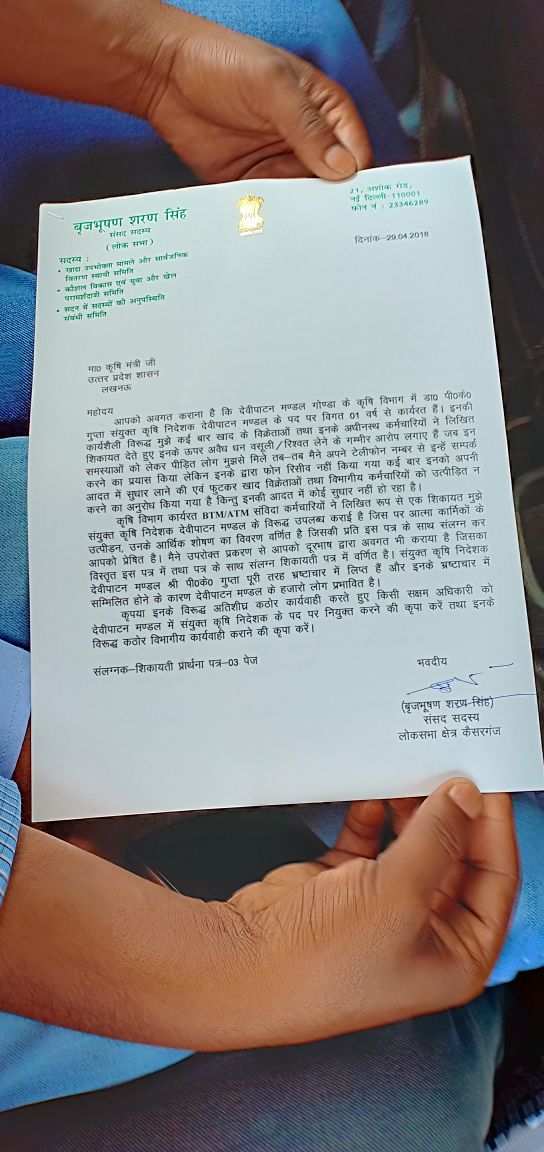 बृजभूषण शरण सिंह
संसद सदस्य
(लोक सभा)
सदस्य :
• खाद्य उपभोक्ता मामले और सार्वजनिक
वितरण स्थायी समिति
• कौशल विकास एवं युवा और खेल
परामर्शदात्री समिति
• सदन में सदस्यों की अनुपस्थिति
संबंधी समिति
21, अशोक रोड,
नई दिल्ली-110001
फोन नं : 23346289
दिनांक–29.04.2018
मा0 कृषि मंत्री जी
उत्तर प्रदेश शासन
लखनऊ
महोदय
आपको अवगत कराना है कि देवीपाटन मण्डल गोण्डा के कृषि विभाग में डा0 पी0के0
गुप्ता संयुक्त कृषि निदेशक देवीपाटन मण्डल के पद पर विगत 01 वर्ष से कार्यरत हैं। इनकी
कार्यशैली विरूद्ध मुझे कई बार खाद के विक्रेताओं तथा इनके अधीनस्थ कर्मचारियों ने लिखित
शिकायत देते हुए इनके ऊपर अवैध धन वसूली/रिश्वत लेने के गम्भीर आरोप लगाए हैं जब इन
समस्याओं को लेकर पीड़ित लोग मुझसे मिले तब–तब मैने अपने टेलीफोन नम्बर से इन्हें सम्पर्क
करने का प्रयास किया लेकिन इनके द्वारा फोन रिसीव नहीं किया गया कई बार इनको अपनी
आदत में सुधार लाने की एवं फुटकर खाद विक्रेताओं तथा विभागीय कर्मचारियों को उत्पीड़ित न
करने का अनुरोध किया गया है किन्तु इनकी आदत में कोई सुधार नहीं हो रहा है।
कृषि विभाग कार्यरत BTM/ATM संविदा कर्मचारियों ने लिखित रूप से एक शिकायत मुझे
संयुक्त कृषि निदेशक देवीपाटन मण्डल के विरूद्ध उपलब्ध कराई है जिस पर आत्मा कार्मिकों के
उत्पीड़न, उनके आर्थिक शोषण का विवरण वर्णित है जिसकी प्रति इस पत्र के साथ संलग्न कर
आपको प्रेषित है। मैने उपरोक्त प्रकरण से आपको दूरभाष द्वारा अवगत भी कराया है जिसका
विस्तृत इस पत्र में तथा पत्र के साथ संलग्न शिकायती पत्र में वर्णित है। संयुक्त कृषि निदेशक
देवीपाटन मण्डल श्री पी0के0 गुप्ता पूरी तरह भ्रष्टाचार में लिप्त हैं और इनके भ्रष्टाचार में
सम्मिलित होने के कारण देवीपाटन मण्डल के हजारो लोग प्रभावित है।
कृपया इनके विरूद्ध अतिशीघ्र कठोर कार्यवाही करते हुए किसी सक्षम अधिकारी को
देवीपाटन मण्डल में संयुक्त कृषि निदेशक के पद पर नियुक्त करने की कृपा करें तथा इनके
विरूद्ध कठोर विभागीय कार्यवाही कराने की कृपा करें।
संलग्नक–शिकायती प्रार्थना पत्र–03 पेज
भवदीय
(बृजभूषण शरण सिंह)
संसद सदस्य
लोकसभा क्षेत्र कैसरगंज